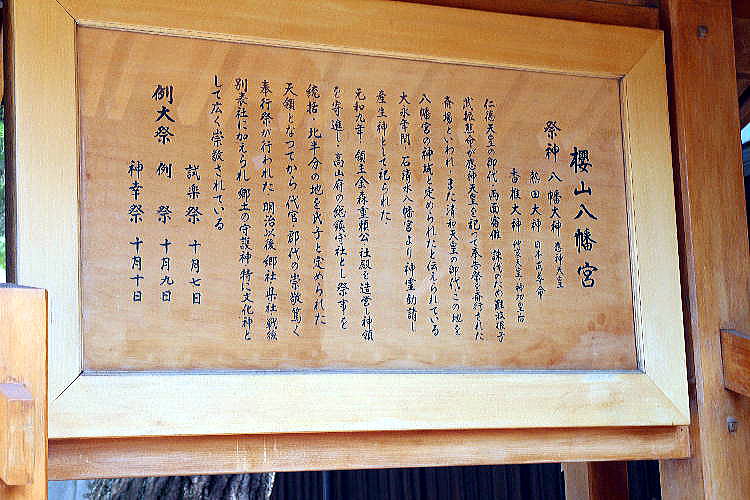 櫻山八幡宮
祭神 八幡大神 応神天皇
熱田大神 日本武尊命
香椎大神 仲哀天皇 神功皇后
仁徳天皇の御代・両面宿儺 誅伐のため難波根子
武振熊命が応神天皇を祀って奉告祭を斎行された
斎場といわれ・また清和天皇の御代、この地を
八幡宮の神域と定められたと伝えられている
大永年間・石清水八幡宮より神霊勧請し
産生神として祀られた
元和九年・領主金森重頼公社殿を造営し神領
を寄進し・高山府の総鎮守社とし祭事を
統括・北半分の地を氏子と定められた
天領となってから代官・郡代の崇敬篤く
奉行祭が行われた 明治以後 郷社県社戦後
別表社に加えられ 郷土の守護神 特に文化神と
して広く崇敬されている
試楽祭 十月七日
例大祭 例祭 十月九日
神幸祭 十月十日